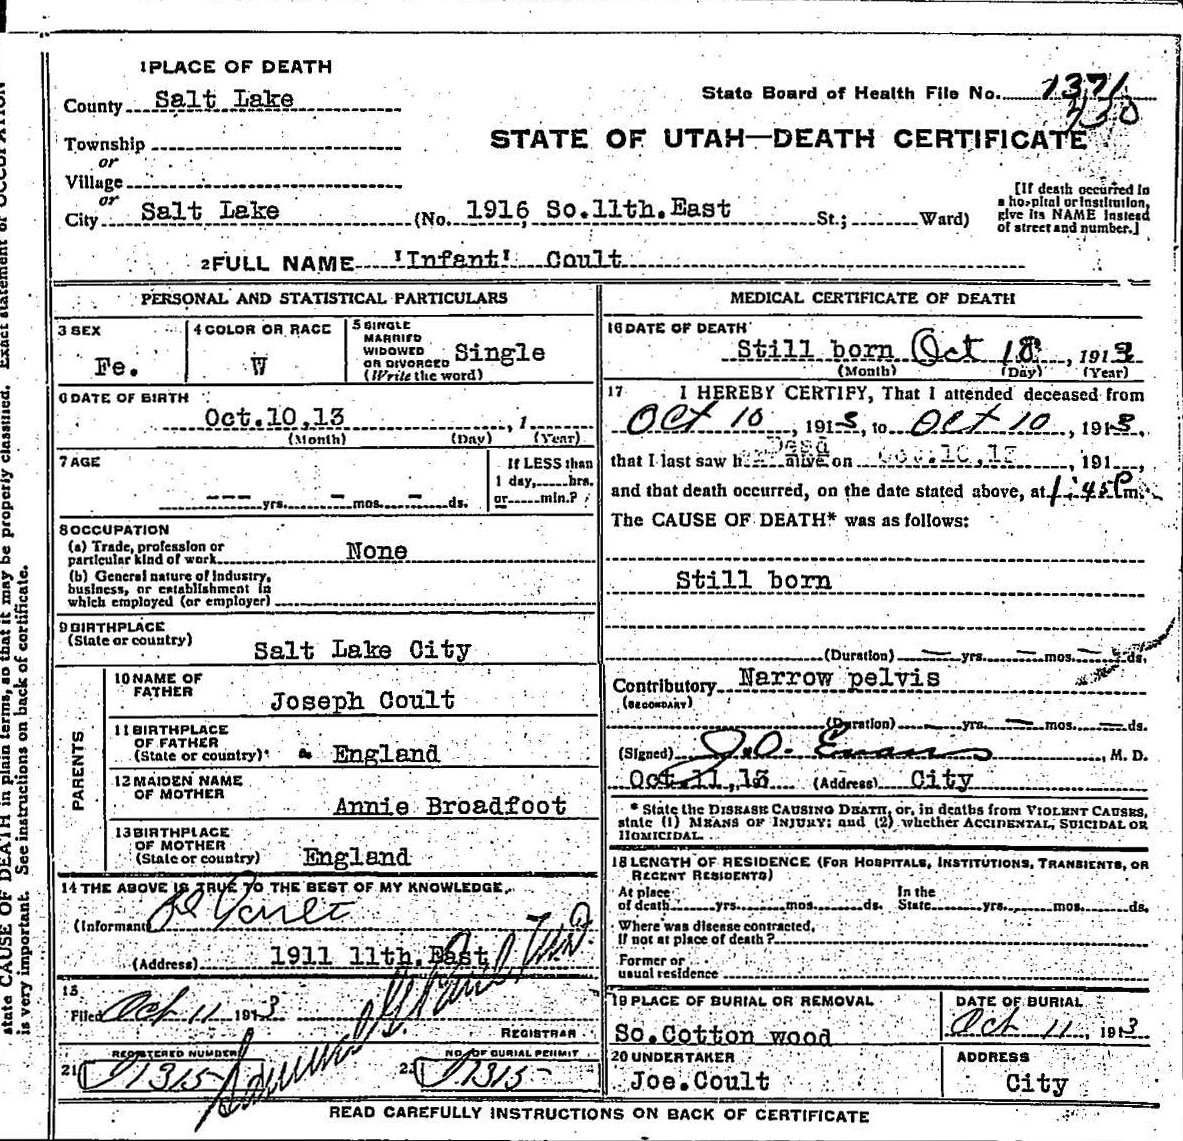 state CAUSE OF DEATH in plain terms, so that it may be properly classified. Exact statement of OCCUPATION
is very important. See instructions on back of certificate.
1 PLACE OF DEATH
County Salt Lake
State Board of Health File No. 1371
230
Township
or
Village
or
City Salt Lake (No. 1916 So.11th.East St.; Ward)
STATE OF UTAH—DEATH CERTIFICATE
[If death occurred in
a hospital or institution,
give its NAME instead
of street and number.]
2 FULL NAME 'Infant' Coult
PERSONAL AND STATISTICAL PARTICULARS
3 SEX
Fe.
4 COLOR OR RACE
W
5 SINGLE
MARRIED
WIDOWED
OR DIVORCED
(Write the word)
Single
6 DATE OF BIRTH
Oct.10,13 , 1
(Month) (Day) (Year)
7 AGE
yrs. mos. ds.
If LESS than
1 day, hrs.
or min.?
8 OCCUPATION
(a) Trade, profession or
particular kind of work None
(b) General nature of industry,
business, or establishment in
which employed (or employer)
9 BIRTHPLACE
(State or country)
Salt Lake City
PARENTS
10 NAME OF
FATHER
Joseph Coult
11 BIRTHPLACE
OF FATHER
(State or country) England
12 MAIDEN NAME
OF MOTHER
Annie Broadfoot
13 BIRTHPLACE
OF MOTHER
(State or country) England
14 THE ABOVE IS TRUE TO THE BEST OF MY KNOWLEDGE,
(Informant Coult
(Address) 1911 11th.East
15
Filed Oct 11 1913
REGISTRAR
REGISTERED NUMBER
21 7315
NO. OF BURIAL PERMIT
22 7315
MEDICAL CERTIFICATE OF DEATH
16 DATE OF DEATH
Still born Oct 18 , 1913
(Month) (Day) (Year)
17 I HEREBY CERTIFY, That I attended deceased from
Oct 10 , 1913, to Oct 10 , 1913,
Dead
that I last saw h alive on Oct.10,13 , 191 ,
and that death occurred, on the date stated above, at 1:45 P m.
The CAUSE OF DEATH* was as follows:
Still born
(Duration) — yrs. — mos. — ds.
Contributory Narrow pelvis
(SECONDARY)
(Duration) — yrs. — mos. — ds.
(Signed) J.O. Evans , M. D.
Oct.11,13 (Address) City
* State the DISEASE CAUSING DEATH, or, in deaths from VIOLENT CAUSES,
state (1) MEANS OF INJURY; and (2) whether ACCIDENTAL, SUICIDAL OR
HOMICIDAL.
18 LENGTH OF RESIDENCE (FOR HOSPITALS, INSTITUTIONS, TRANSIENTS, OR
RECENT RESIDENTS)
At place
of death yrs. mos. ds.
In the
State yrs. mos. ds.
Where was disease contracted,
If not at place of death?
Former or
usual residence
19 PLACE OF BURIAL OR REMOVAL
So.Cotton wood
DATE OF BURIAL
Oct 11 , 1913
20 UNDERTAKER
Joe.Coult
ADDRESS
City
READ CAREFULLY INSTRUCTIONS ON BACK OF CERTIFICATE